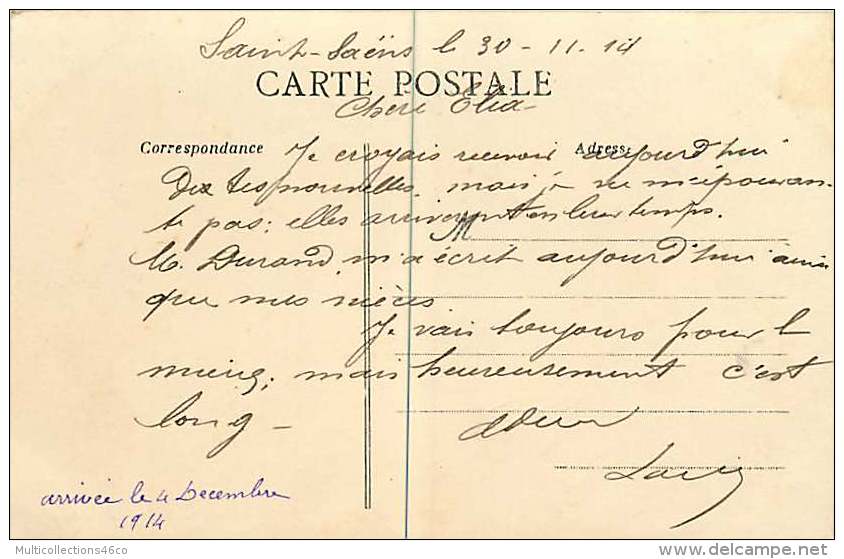 Saint-Saëns le 30-11-14
CARTE POSTALE
Chère Elia
Correspondance
Adresse
Je croyais recevoir aujourd'hui
des tes nouvelles, mais je ne m'épouvan-
te pas; elles arriveront en leur temps.
M
M. Durand m'a écrit aujourd'hui ainsi
que mes nièces
Je vais toujours pour le
mieux; mais heureusement c'est
long -
Louis
arrivée le 4 Decembre
1914
Multicollections46co
delcampe.net